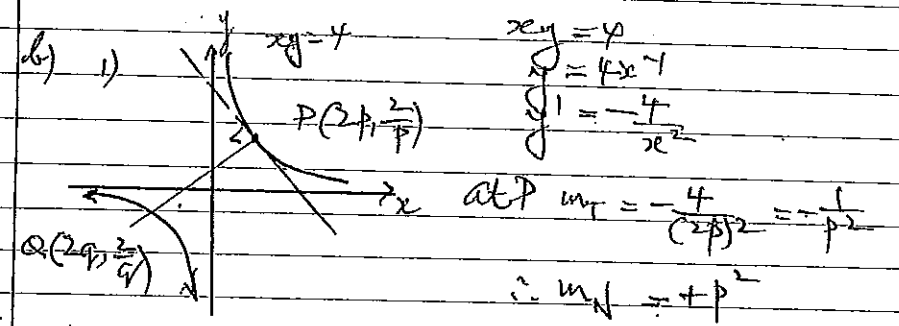 b) 1)
y
xy=4
P(2p, 2/p)
x
Q(2q, 2/q)
xy = 4
y = 4x^-1
y' = -4/x^2
at P m_T = -4/(2p)^2 = -1/p^2
∴ m_N = +p^2